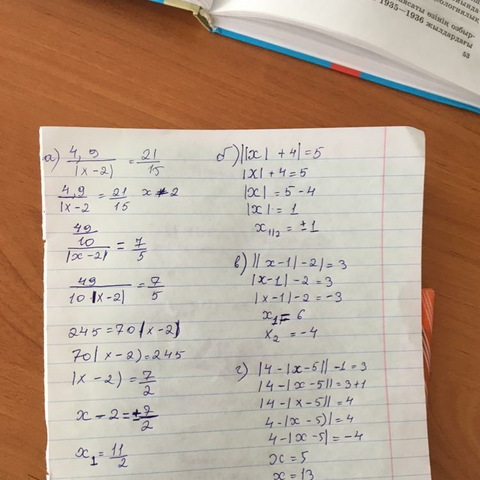 1935—1936 жылдардағы
53
а) 4,9/|x-2) = 21/15
4,9/|x-2 = 21/15 x≠2
49/10/|x-2| = 7/5
49/10|x-2| = 7/5
245=70|x-2|
70|x-2)=245
|x-2)=7/2
x-2=±7/2
x₁=11/2
б) ||x| +4|=5
|x|+4=5
|x|=5-4
|x|=1
x₁,₂=±1
в) ||x-1|-2|=3
|x-1|-2=3
|x-1|-2=-3
x₁=6
x₂=-4
г) |4-|x-5||-1=3
|4-|x-5||=3+1
|4-|x-5||=4
4-|x-5)|=4
4-|x-5|=-4
x=5
x=13